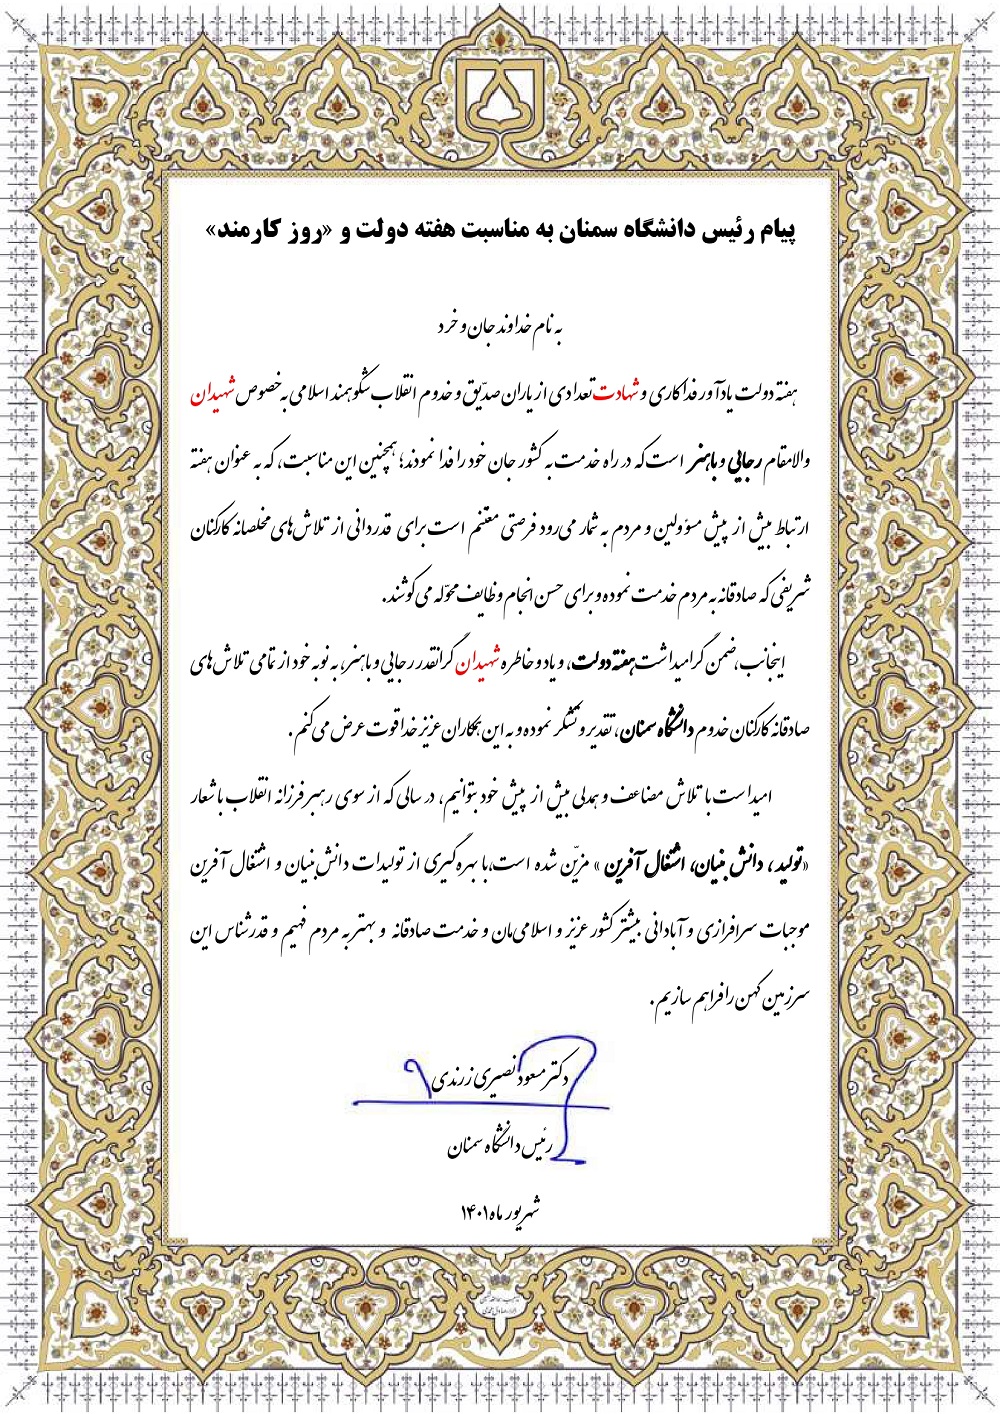 پیام رئیس دانشگاه سمنان به مناسبت هفته دولت و «روز کارمند»
به نام خداوند جان و خرد
هفته دولت یادآور فداکاری و شهادت تعدادی از یاران صدّیق و خدوم انقلاب شکوهمند اسلامی به خصوص شهیدان
والامقام رجایی و باهنر است که در راه خدمت به کشور جان خود را فدا نمودند؛ همچنین این مناسبت، که به عنوان هفته
ارتباط بیش از پیش مسؤولین و مردم به شمار می‌رود فرصتی مغتنم است برای قدردانی از تلاش‌های مخلصانه کارکنان
شریفی که صادقانه به مردم خدمت نموده و برای حسن انجام وظایف محوّله می‌کوشند.
اینجانب، ضمن گرامیداشت هفته دولت، و یاد و خاطره شهیدان گرانقدر رجایی و باهنر، به نوبه خود از تمامی تلاش‌های
صادقانه کارکنان خدوم دانشگاه سمنان، تقدیر و تشکر نموده و به این همکاران عزیز خدا قوت عرض می‌کنم.
امید است با تلاش مضاعف و همدلی بیش از پیش خود بتوانیم، در سالی که از سوی رهبر فرزانه انقلاب با شعار
«تولید ، دانش بنیان، اشتغال آفرین » مزیّن شده است، با بهره‌گیری از تولیدات دانش‌بنیان و اشتغال آفرین
موجبات سرافرازی و آبادانی بیشتر کشور عزیز و اسلامی‌مان و خدمت صادقانه و بهتر به مردم فهیم و قدرشناس این
سرزمین کهن را فراهم سازیم.
دکتر مسعود نصیری زرندی
رئیس دانشگاه سمنان
شهریور ماه ۱۴۰۱